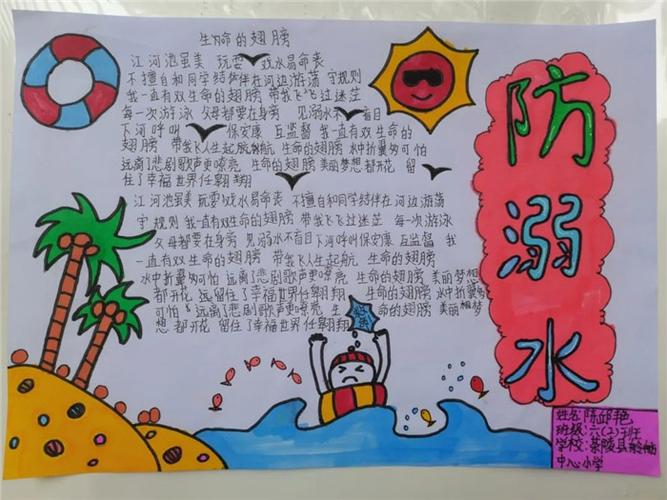 生命的翅膀
江河池虽美 玩耍 戏水易命丧
不擅自和同学结伴伴在河边游荡 守规则
我一直有双生命的翅膀 带我飞飞过迷茫
每一次游泳 父母都要在身旁 见溺水不盲目
下河呼叫 保安康 互监督 我一直有双生命的
翅膀 带我飞人生起航航 生命的翅膀 水中折翼匆可怕
远离了悲剧歌声更嘹亮 生命的翅膀 美丽梦想都开花 留
住了幸福世界任翱翔
江河池虽美 玩耍戏水易命丧 不擅自和同学结伴在河边游荡
守规则 我一直有双生命的翅膀 带我飞飞过迷茫 每一次游泳
父母都要在身旁 见溺水不盲目下河呼叫保安康 互监督 我
一直有双生命的翅膀 带我飞人生起航 生命的翅膀
水中折翼匆可怕 远离了悲剧歌声更嘹亮 生命的翅膀 美丽梦想
都开花 远留住了幸福世界任翱翔 生命的翅膀 水中折翼匆
可怕 远离了悲剧歌声更嘹亮 生 命的翅膀 美丽想梦
想 都开花 留住了幸福世界任翱翔
防溺水
姓名:陈邱艳
班级:六(2)班
学校:茶陵县
中心小学